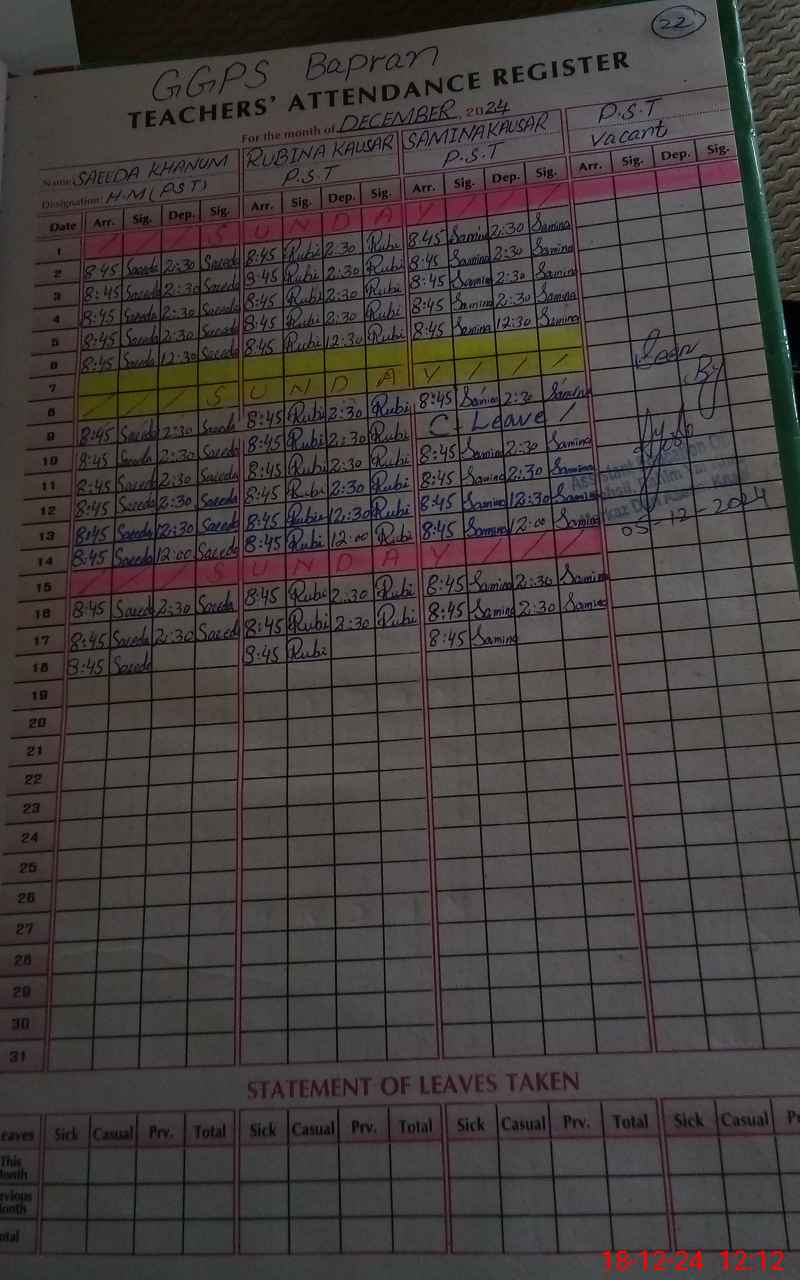 22
GGPS Bapran
TEACHERS' ATTENDANCE REGISTER
For the month of DECEMBER, 2024
Name: SAEEDA KHANUM RUBINA KAUSAR SAMINA KAUSAR P.S.T
Designation: H.M (PST) P.S.T P.S.T Vacant
Date Arr. Sig. Dep. Sig. Arr. Sig. Dep. Sig. Arr. Sig. Dep. Sig. Arr. Sig. Dep. Sig.
1 / / / S U N D A Y / / /
2 8:45 Saeeda 2:30 Saeeda 8:45 Rubi 2:30 Rubi 8:45 Samina 2:30 Samina
3 8:45 Saeeda 2:30 Saeeda 8:45 Rubi 2:30 Rubi 8:45 Samina 2:30 Samina
4 8:45 Saeeda 2:30 Saeeda 8:45 Rubi 2:30 Rubi 8:45 Samina 2:30 Samina
5 8:45 Saeeda 2:30 Saeeda 8:45 Rubi 2:30 Rubi 8:45 Samina 2:30 Samina
6 8:45 Saeeda 12:30 Saeeda 8:45 Rubi 12:30 Rubi 8:45 Samina 12:30 Samina
7
8 / / / S U N D A Y / / /
9 8:45 Saeeda 2:30 Saeeda 8:45 Rubi 2:30 Rubi 8:45 Samina 2:30 Samina
10 8:45 Saeeda 2:30 Saeeda 8:45 Rubi 2:30 Rubi C-Leave /
11 8:45 Saeeda 2:30 Saeeda 8:45 Rubi 2:30 Rubi 8:45 Samina 2:30 Samina
12 8:45 Saeeda 2:30 Saeeda 8:45 Rubi 2:30 Rubi 8:45 Samina 2:30 Samina
13 8:45 Saeeda 12:30 Saeeda 8:45 Rubi 12:30 Rubi 8:45 Samina 12:30 Samina
14 8:45 Saeeda 12:00 Saeeda 8:45 Rubi 12:00 Rubi 8:45 Samina 12:00 Samina
15 / / / S U N D A Y / / /
16 8:45 Saeeda 2:30 Saeeda 8:45 Rubi 2:30 Rubi 8:45 Samina 2:30 Samina
17 8:45 Saeeda 2:30 Saeeda 8:45 Rubi 2:30 Rubi 8:45 Samina 2:30 Samina
18 8:45 Saeeda 8:45 Rubi 8:45 Samina
19
20
21
22
23
24
25
26
27
28
29
30
31
Seen
By
Assistant Education
05-12-2024
STATEMENT OF LEAVES TAKEN
eaves Sick Casual Prv. Total Sick Casual Prv. Total Sick Casual Prv. Total Sick Casual P
This
onth
evious
onth
otal
18-12-24 12:12